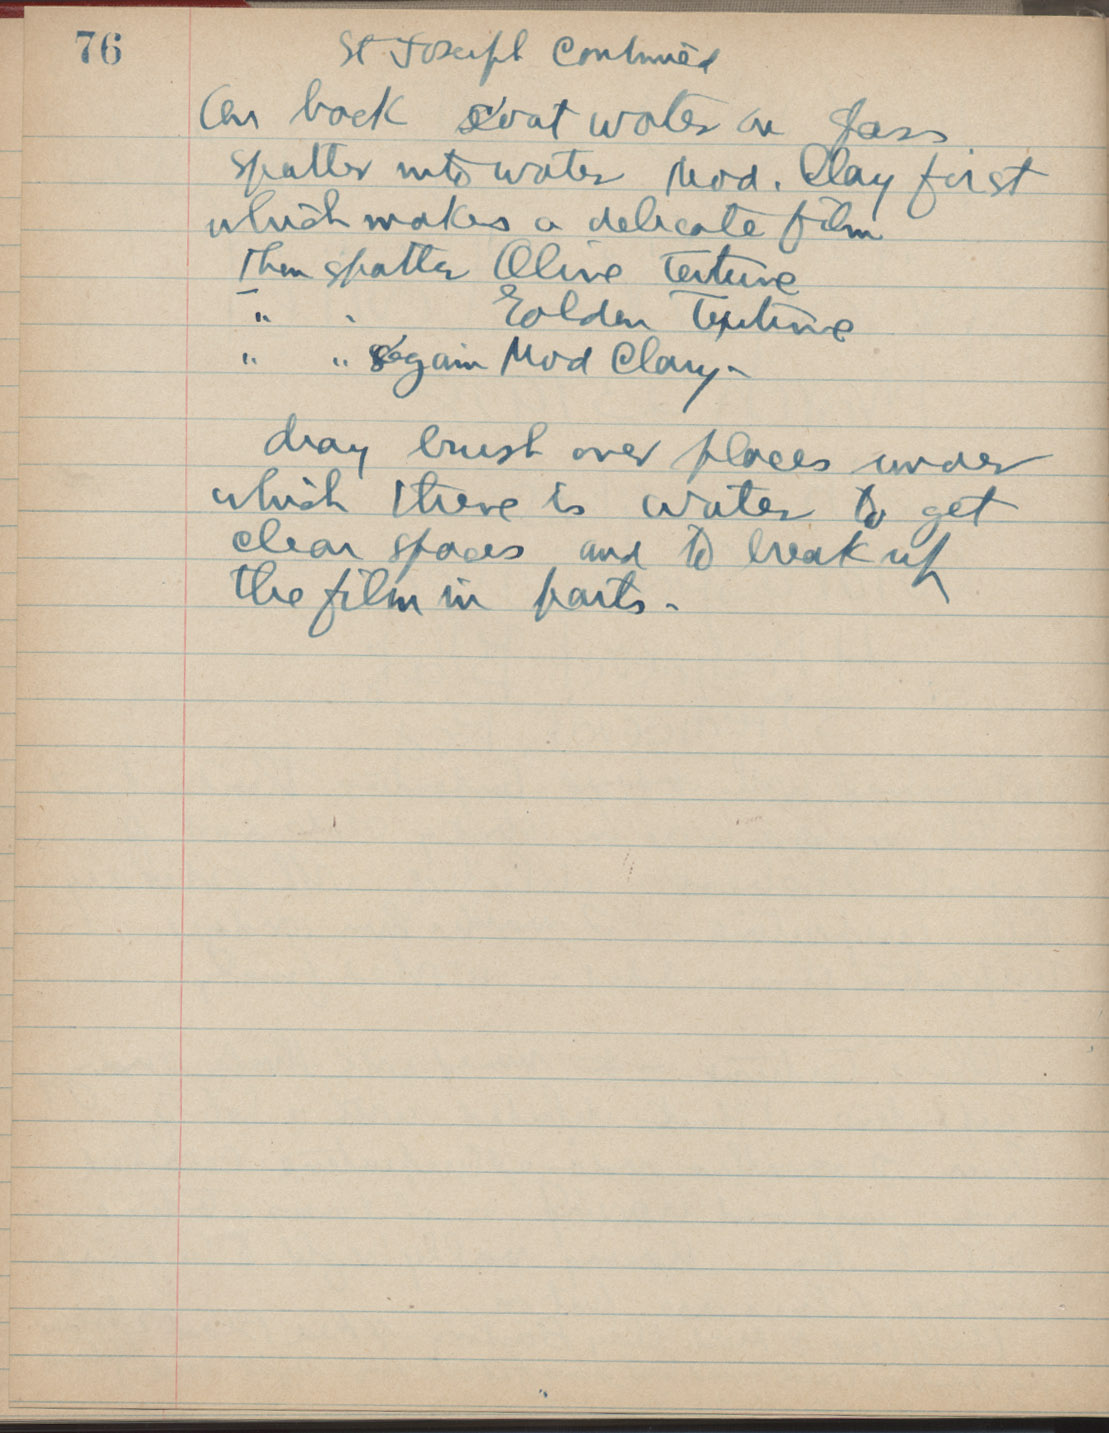 76
St Joseph Continued
On back coat water on glass
spatter into water Mod. Clay first
which makes a delicate film
Then spatter Olive texture
" " Golden Texture
" " again Mod Clay -
dray brush over places under
which there is water to get
clear spaces and to break up
the film in parts -